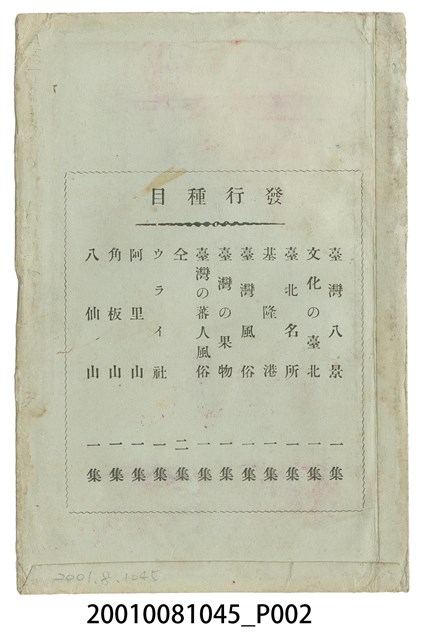 發行種目
臺灣八景 一集
文化の臺北 一集
臺北名所 一集
基隆港 一集
臺灣風俗 一集
臺灣の果物 一集
臺灣の蕃人風俗 一集
仝 二集
ウライ社 一集
阿里山 一集
角板山 一集
八仙山 一集
2001.8.1045
20010081045_P002